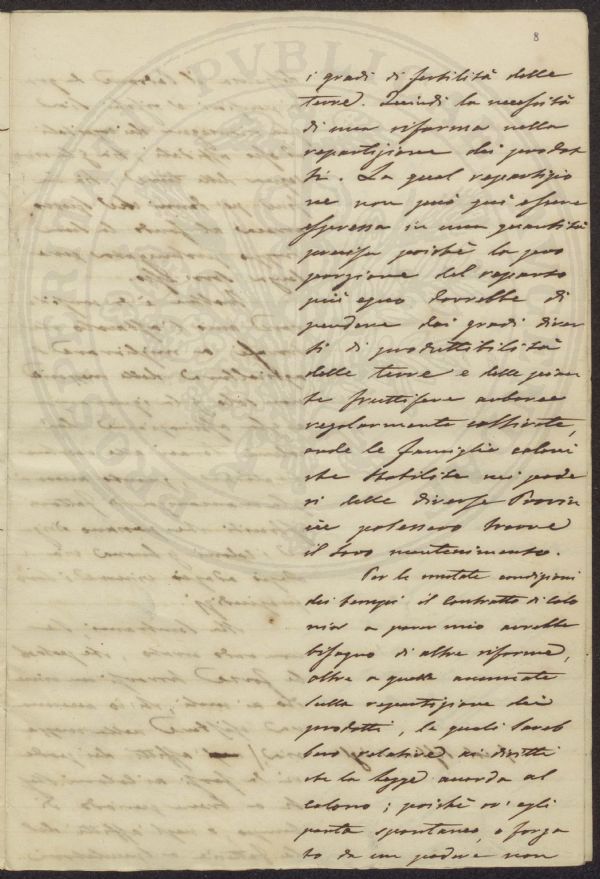 8
i gradi di fertilità delle
terre. Quindi la necessità
di una riforma nella
repartizione dei prodot
ti. La qual repartizio
ne non può qui essere
espressa in una quantità
precisa poichè la pro
porzione del reparto
più equo dovrebbe di
pendere dai gradi diver
si di produttibilità
delle terre e delle pian
te fruttifere arboree
regolarmente coltivate,
onde le famiglie coloni
che stabilite nei pode
ri delle diverse Provin
cie potessero trovare
il loro mantenimento.
Per le mutate condizioni
dei tempi il contratto di colo
nia a parer mio avrebbe
bisogno di altre riforme,
oltre a quelle annunciate
sulla repartizione dei
prodotti, le quali sareb
bero relative ai diritti
che la legge accorda al
colono; poichè ov'egli
parta spontaneo, o forza
to da un podere non
PVBLIC